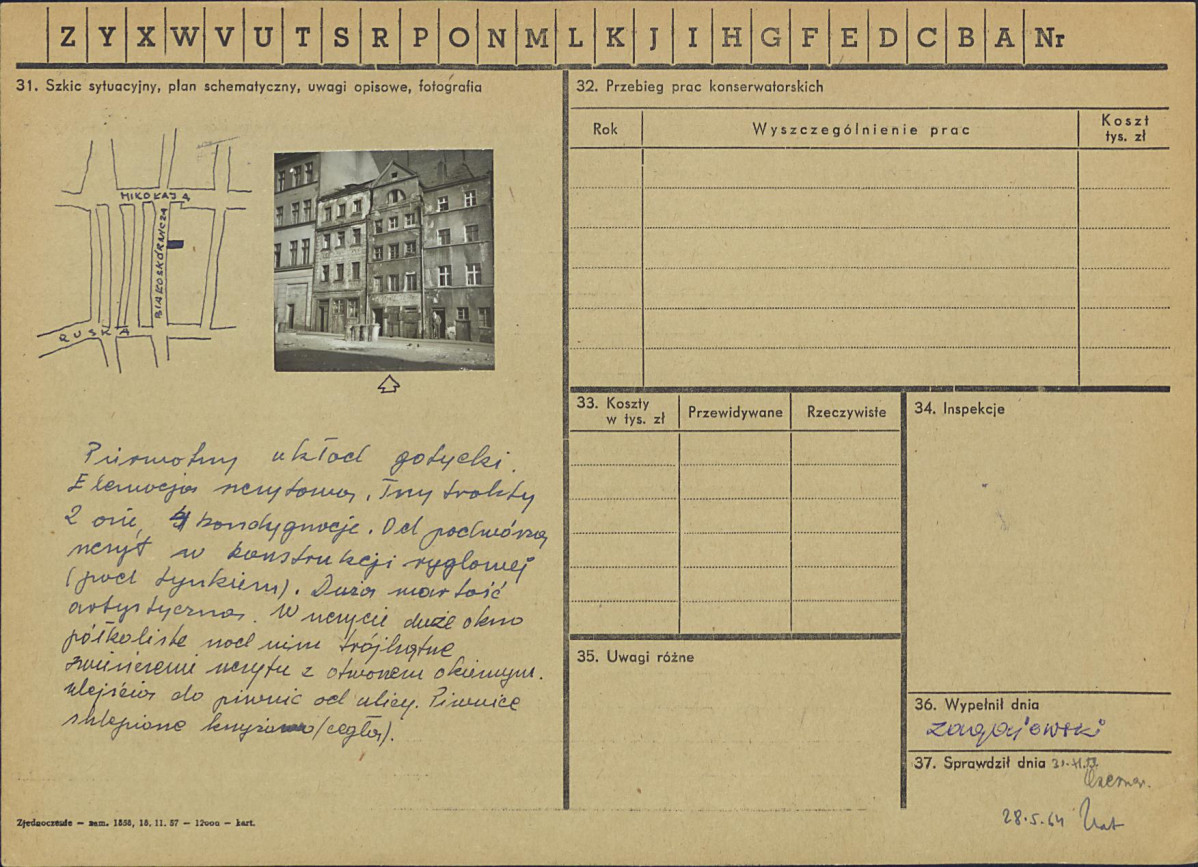 Z Y X W V U T S R P O N M L K J I H G F E D C B A Nr
31. Szkic sytuacyjny, plan schematyczny, uwagi opisowe, fotografia
MIKOŁAJA
BIAŁOSKÓRNICZA
RUSKA
Pierwotny układ gotycki.
Elewacja szczytowa. Trzy trakty
2 osie, 4 kondygnacje. Od podwórza
szczyt w konstrukcji ryglowej
(pod tynkiem). Duża wartość
artystyczna. W szczycie duże okno
półkoliste nad nim trójkątne
zwieńczenie szczytu z otworem okiennym.
Wejścia do piwnic od ulicy. Piwnice
sklepione (cegła).
Zjednoczenie – zam. 1858, 18. 11. 57 – 12000 – kart.
32. Przebieg prac konserwatorskich
Rok
Wyszczególnienie prac
Koszt
tys. zł
33. Koszty
w tys. zł
Przewidywane
Rzeczywiste
34. Inspekcje
35. Uwagi różne
36. Wypełnił dnia
37. Sprawdził dnia
28.5.64